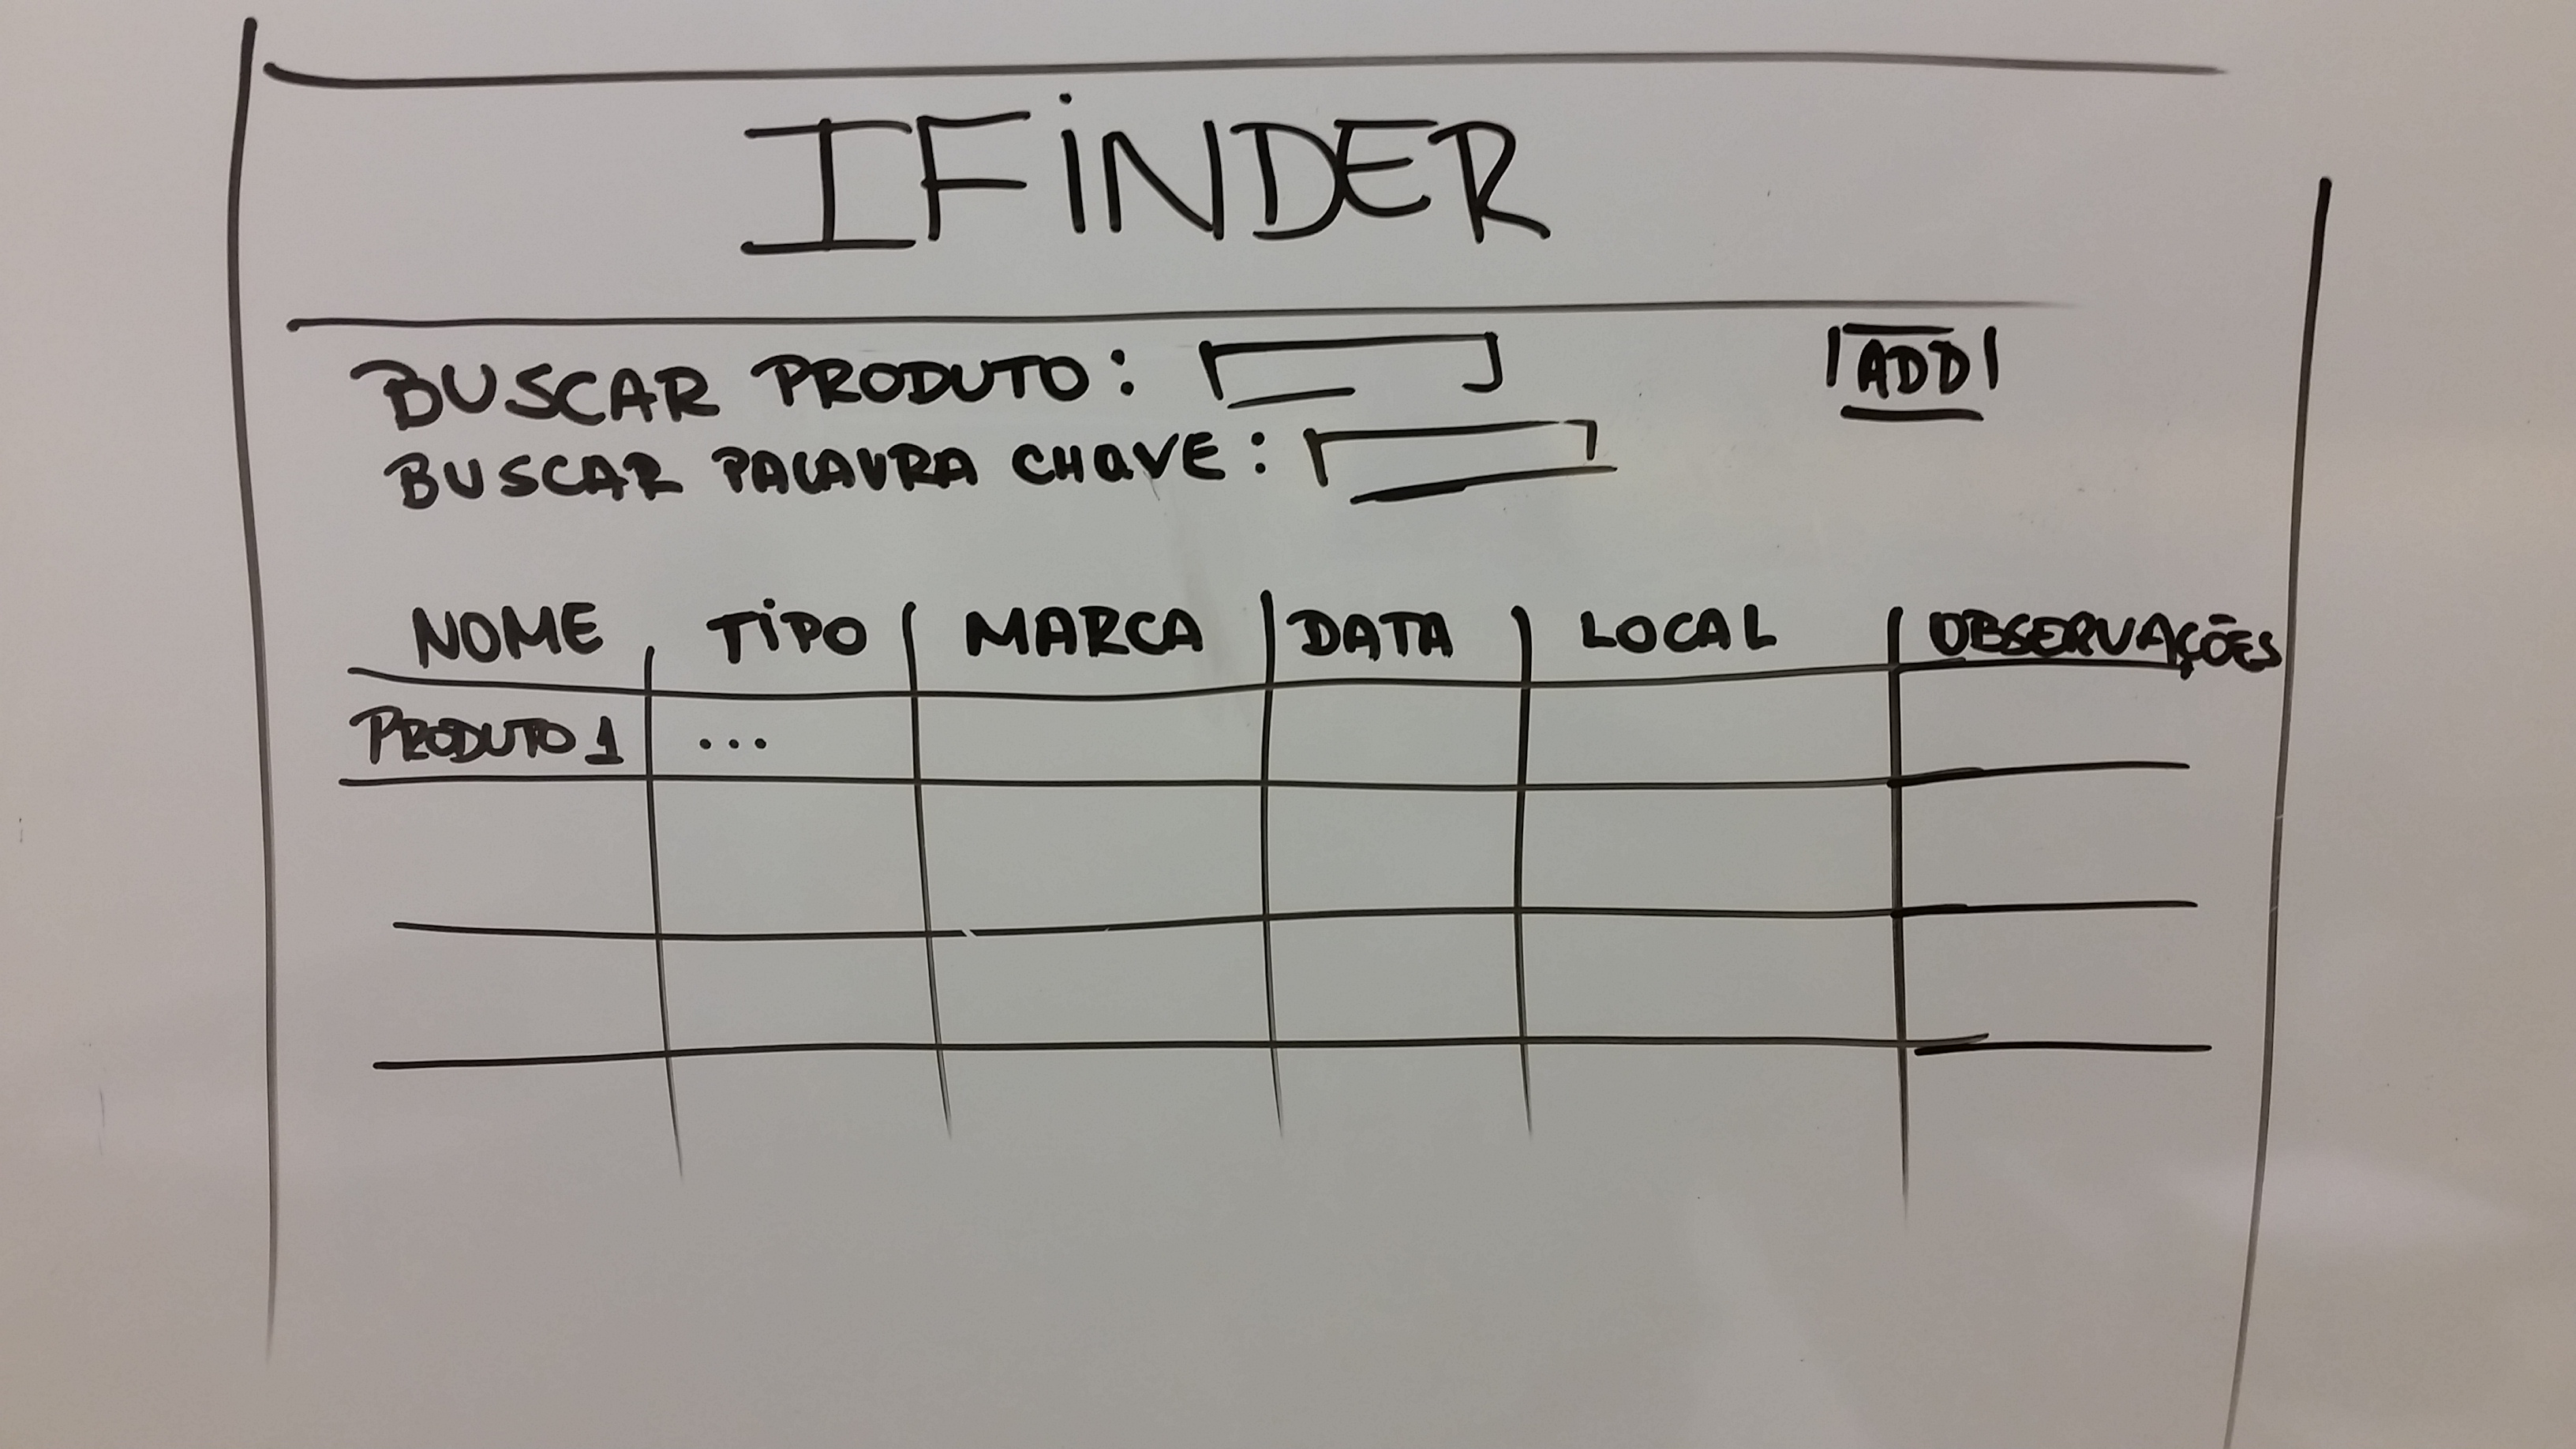 IFINDER
BUSCAR PRODUTO: ADD
BUSCAR PALAVRA CHAVE:
NOME TIPO MARCA DATA LOCAL OBSERVAÇÕES
PRODUTO 1 ...